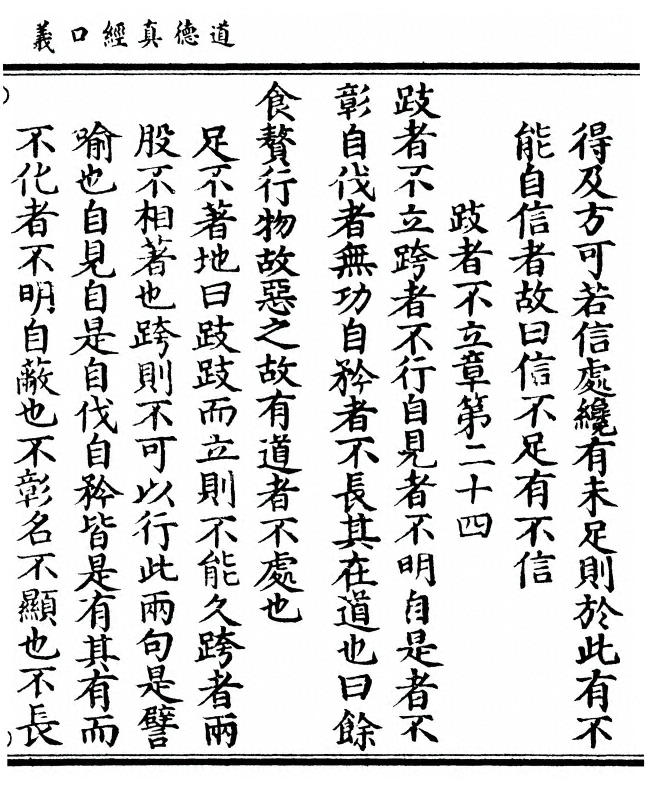 道德真經口義
得及方可若信處纔有未足則於此有不
能自信者故曰信不足有不信
跂者不立章第二十四
跂者不立跨者不行自見者不明自是者不
彰自伐者無功自矜者不長其在道也曰餘
食贅行物故惡之故有道者不處也
足不著地曰跂跂而立則不能久跨者兩
股不相著也跨則不可以行此兩句是譬
喻也自見自是自伐自矜皆是有其有而
不化者不明自蔽也不彰名不顯也不長